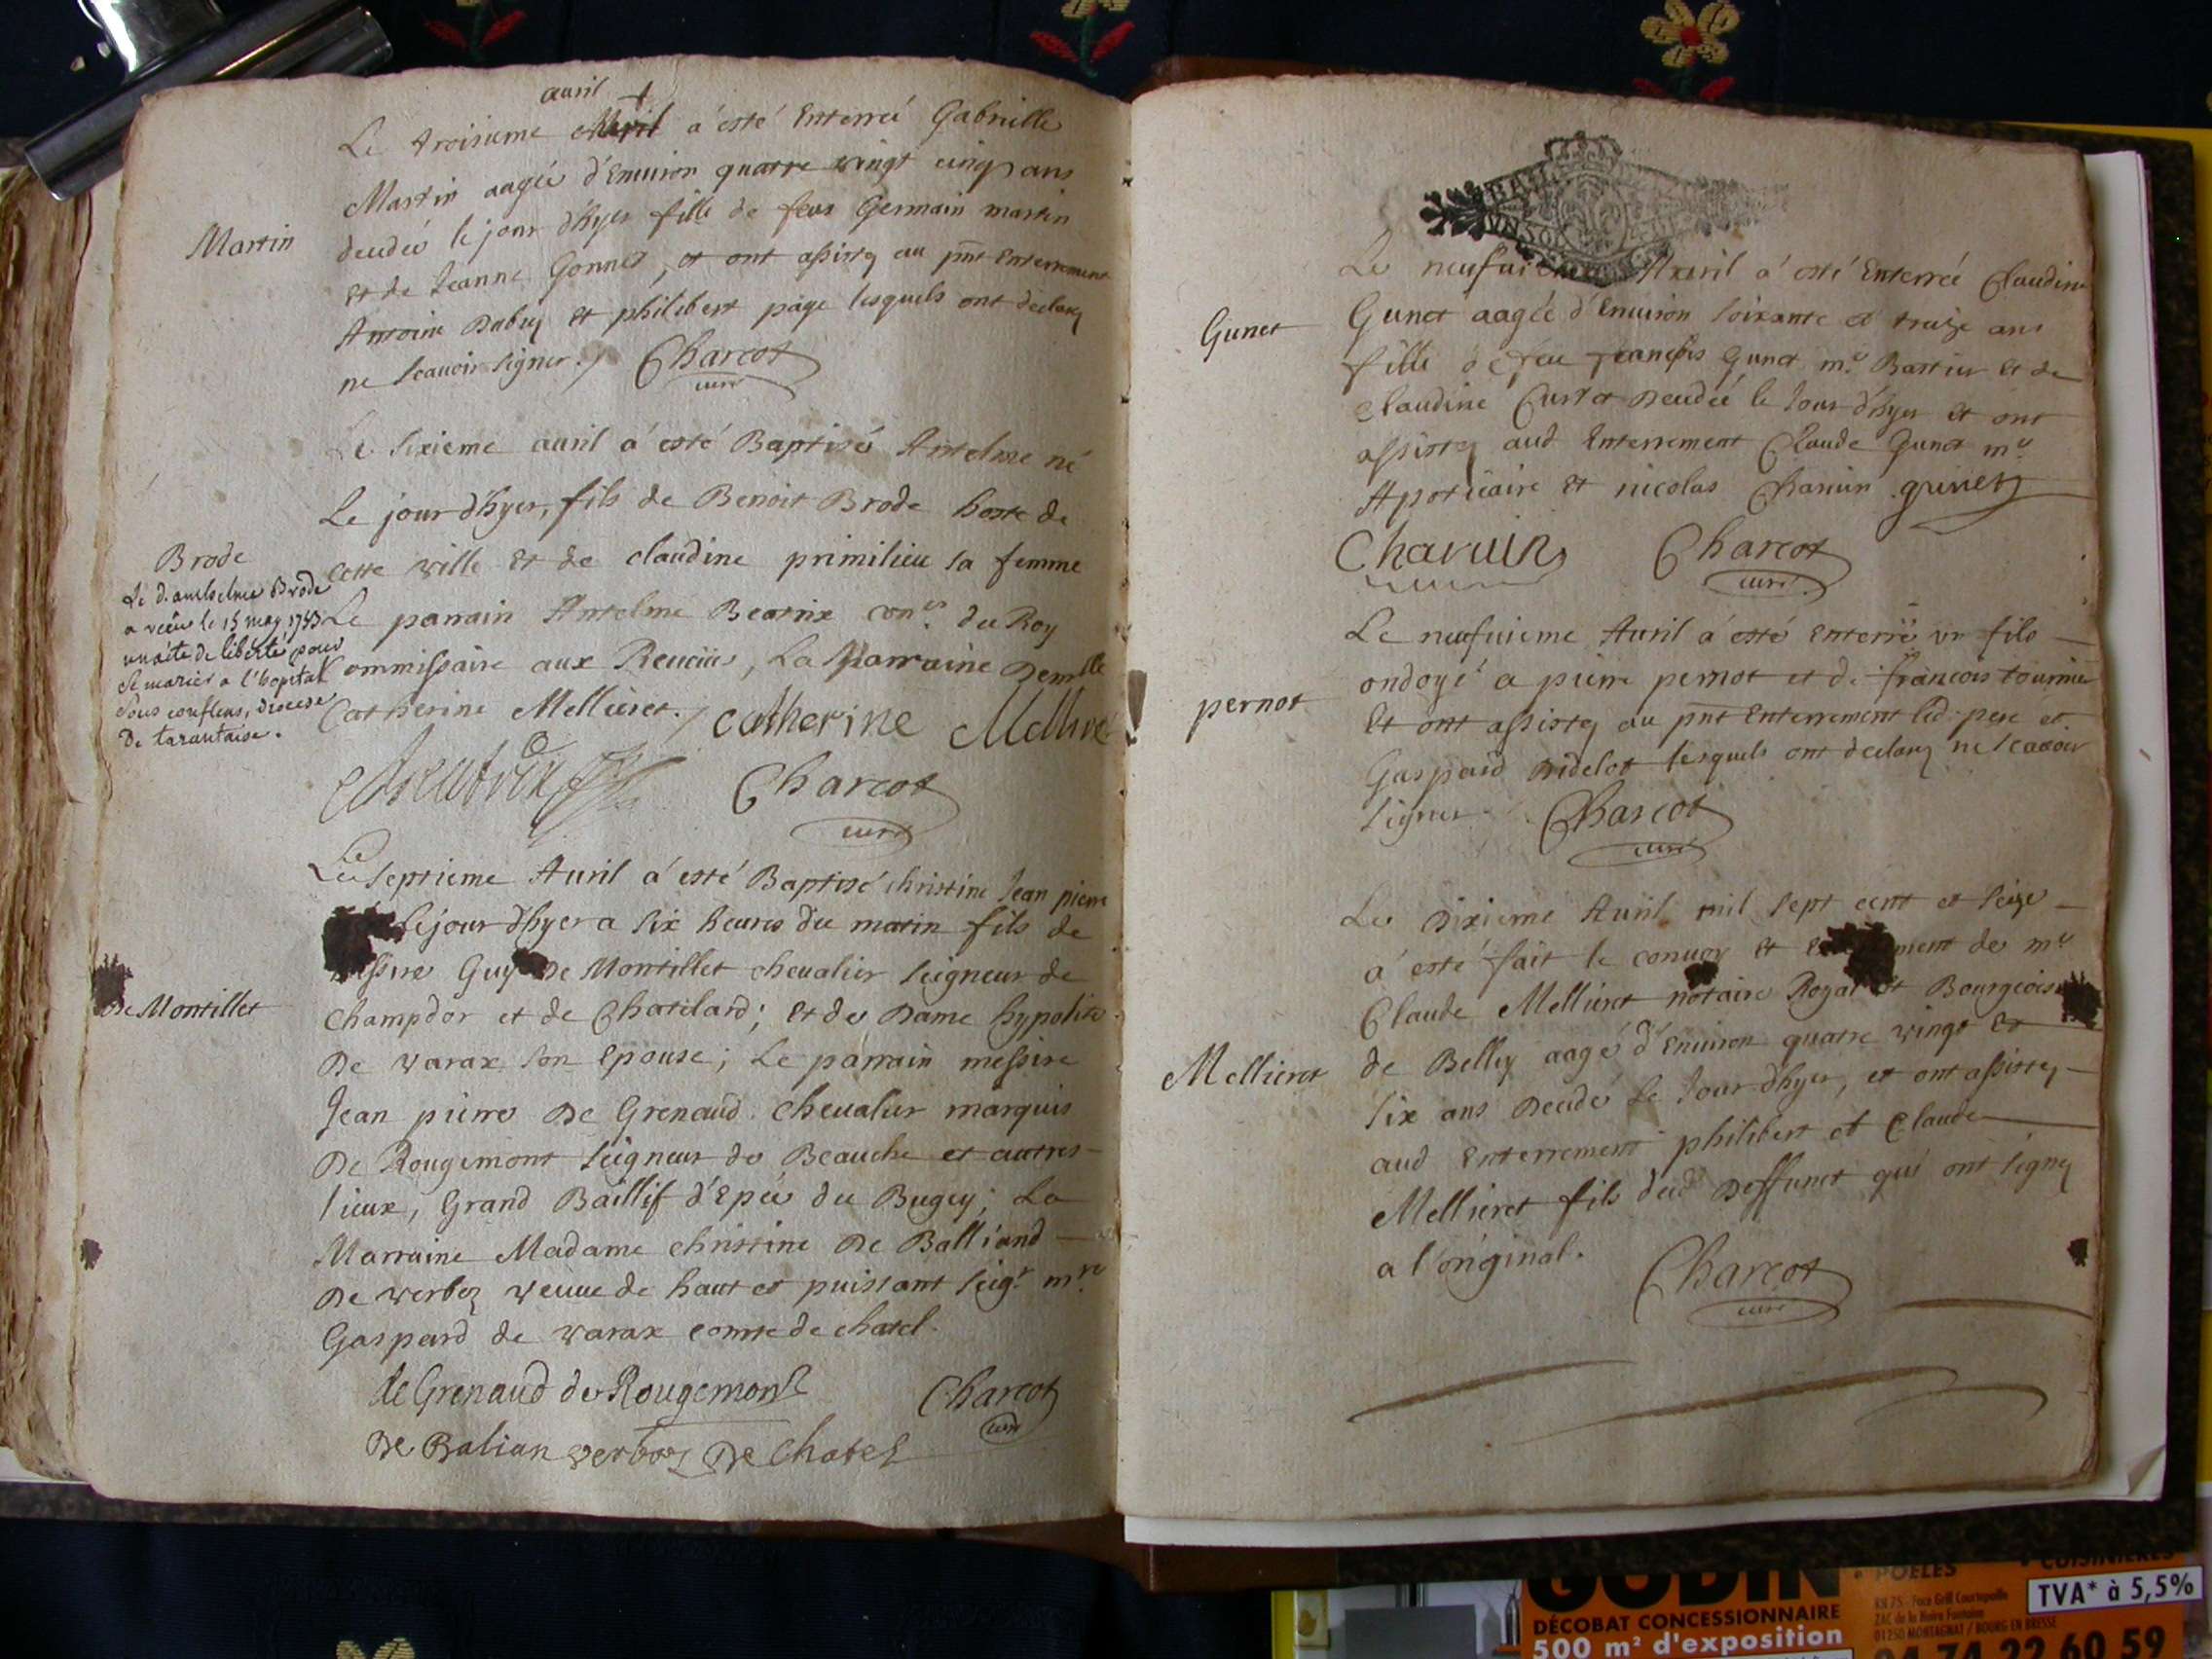 auril +
Le troisieme a esté Enterreé Gabrielle
Martin aageé d'Enuiron quatre vingt cinq ans
decedeé le jour d'hyer fille de feus Germain martin
Martin
et de Jeanne Gonnet, et ont assistez au pnt Enterrement
Antoine Dubuy et philibert page lesquels ont declarez
ne scauoir signer. Charcot
curé
Le sixieme auril a esté Baptisé Antelme né
Le jour d'hyer, fils de Benoit Brode hoste de
Brode
cette ville et de claudine primilieu sa femme
Le d. anthelme Brode
a reçu le 15 may 1743
un acte de liberté pour
se marier a l'hopital
sous conflens, diocese
De tarantaise.
Le parrain Antelme Beatrix con.er du Roy
Commissaire aux Reueües, La Marraine Demlle
Catherine Mellieret. catherine Mellieret
Charcot
curé
Le septieme Auril a esté Baptisé christine Jean pierre
le jour d'hyer a six heures du matin fils de
messire Guy de Montillet cheualier seigneur de
De Montillet
Champdor et de Chatelard; et de Dame hypolite
De varax son epouse; Le parrain messire
Jean pierre De Grenaud cheualier marquis
De Rougemont seigneur de Beauche et autres
lieux, Grand Baillif d'Epeé du Bugey; La
Marraine Madame christine De Balliand
De verboz veuue de haut et puissant seigr. mre
Gaspard de varax comte de chatel.
de Grenaud de Rougemont Charcot
curé
De Balian verboz De Chatel
Le neufuieme Auril a esté Enterreé Claudine
Gunet
Gunet aageé d'Enuiron soixante et treize ans
fille de feu francois Gunet me. Bastier et de
claudine Curtet Decedeé le Jour d'hyer et ont
assistez aud Enterrement Claude Gunet me.
Apoticaire et nicolas Charuin
Charuin Charcot
curé
Le neufuieme Auril a esté enterré un fils
ondoyé a pierre pernot et de francois tournier
pernot
Et ont assistez au pnt Enterrement led. pere et
Gaspard Didelot lesquels ont declarez ne scauoir
signer. Charcot
curé
Le Dixieme Auril mil sept cent et seize
a esté fait le conuoy et Enterrement de me
Claude Mellieret notaire Royal et Bourgeois
Mellieret
de Belley aagé d'Enuiron quatre vingt et
six ans Decedé Le Jour d'hyer, et ont assistez
aud Enterrement philibert et Claude
Mellieret fils dud Deffunct qui ont signez
a l'original. Charcot
curé
GODIN
DÉCOBAT CONCESSIONNAIRE
500 m² d'exposition
POÊLES
CUISINIÈRES
TVA* à 5,5%
01250 MONTAGNAT / BOURG EN BRESSE
04 74 22 60 59